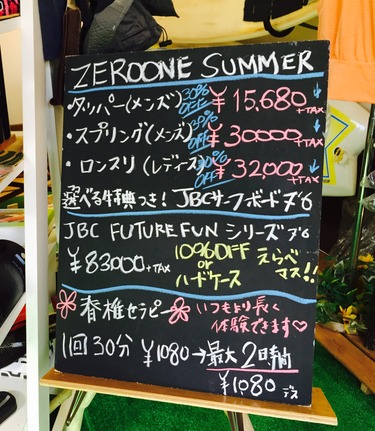 ZEROONE SUMMER
・タッパー(メンズ) 30% OFF ¥15,680 +TAX
・スプリング(メンズ) 30% OFF ¥30000 +TAX
・ロンスリ(レディース) 30% OFF ¥32,000 +TAX
選べる特典つき! JBCサーフボード
JBC FUTURE FUN シリーズ
¥83000+TAX 10%OFF or ハードケース えらべマス!!
脊椎セラピー いつもより長く体験できます♡
1回30分 ¥1080→最大2時間
¥1080デス